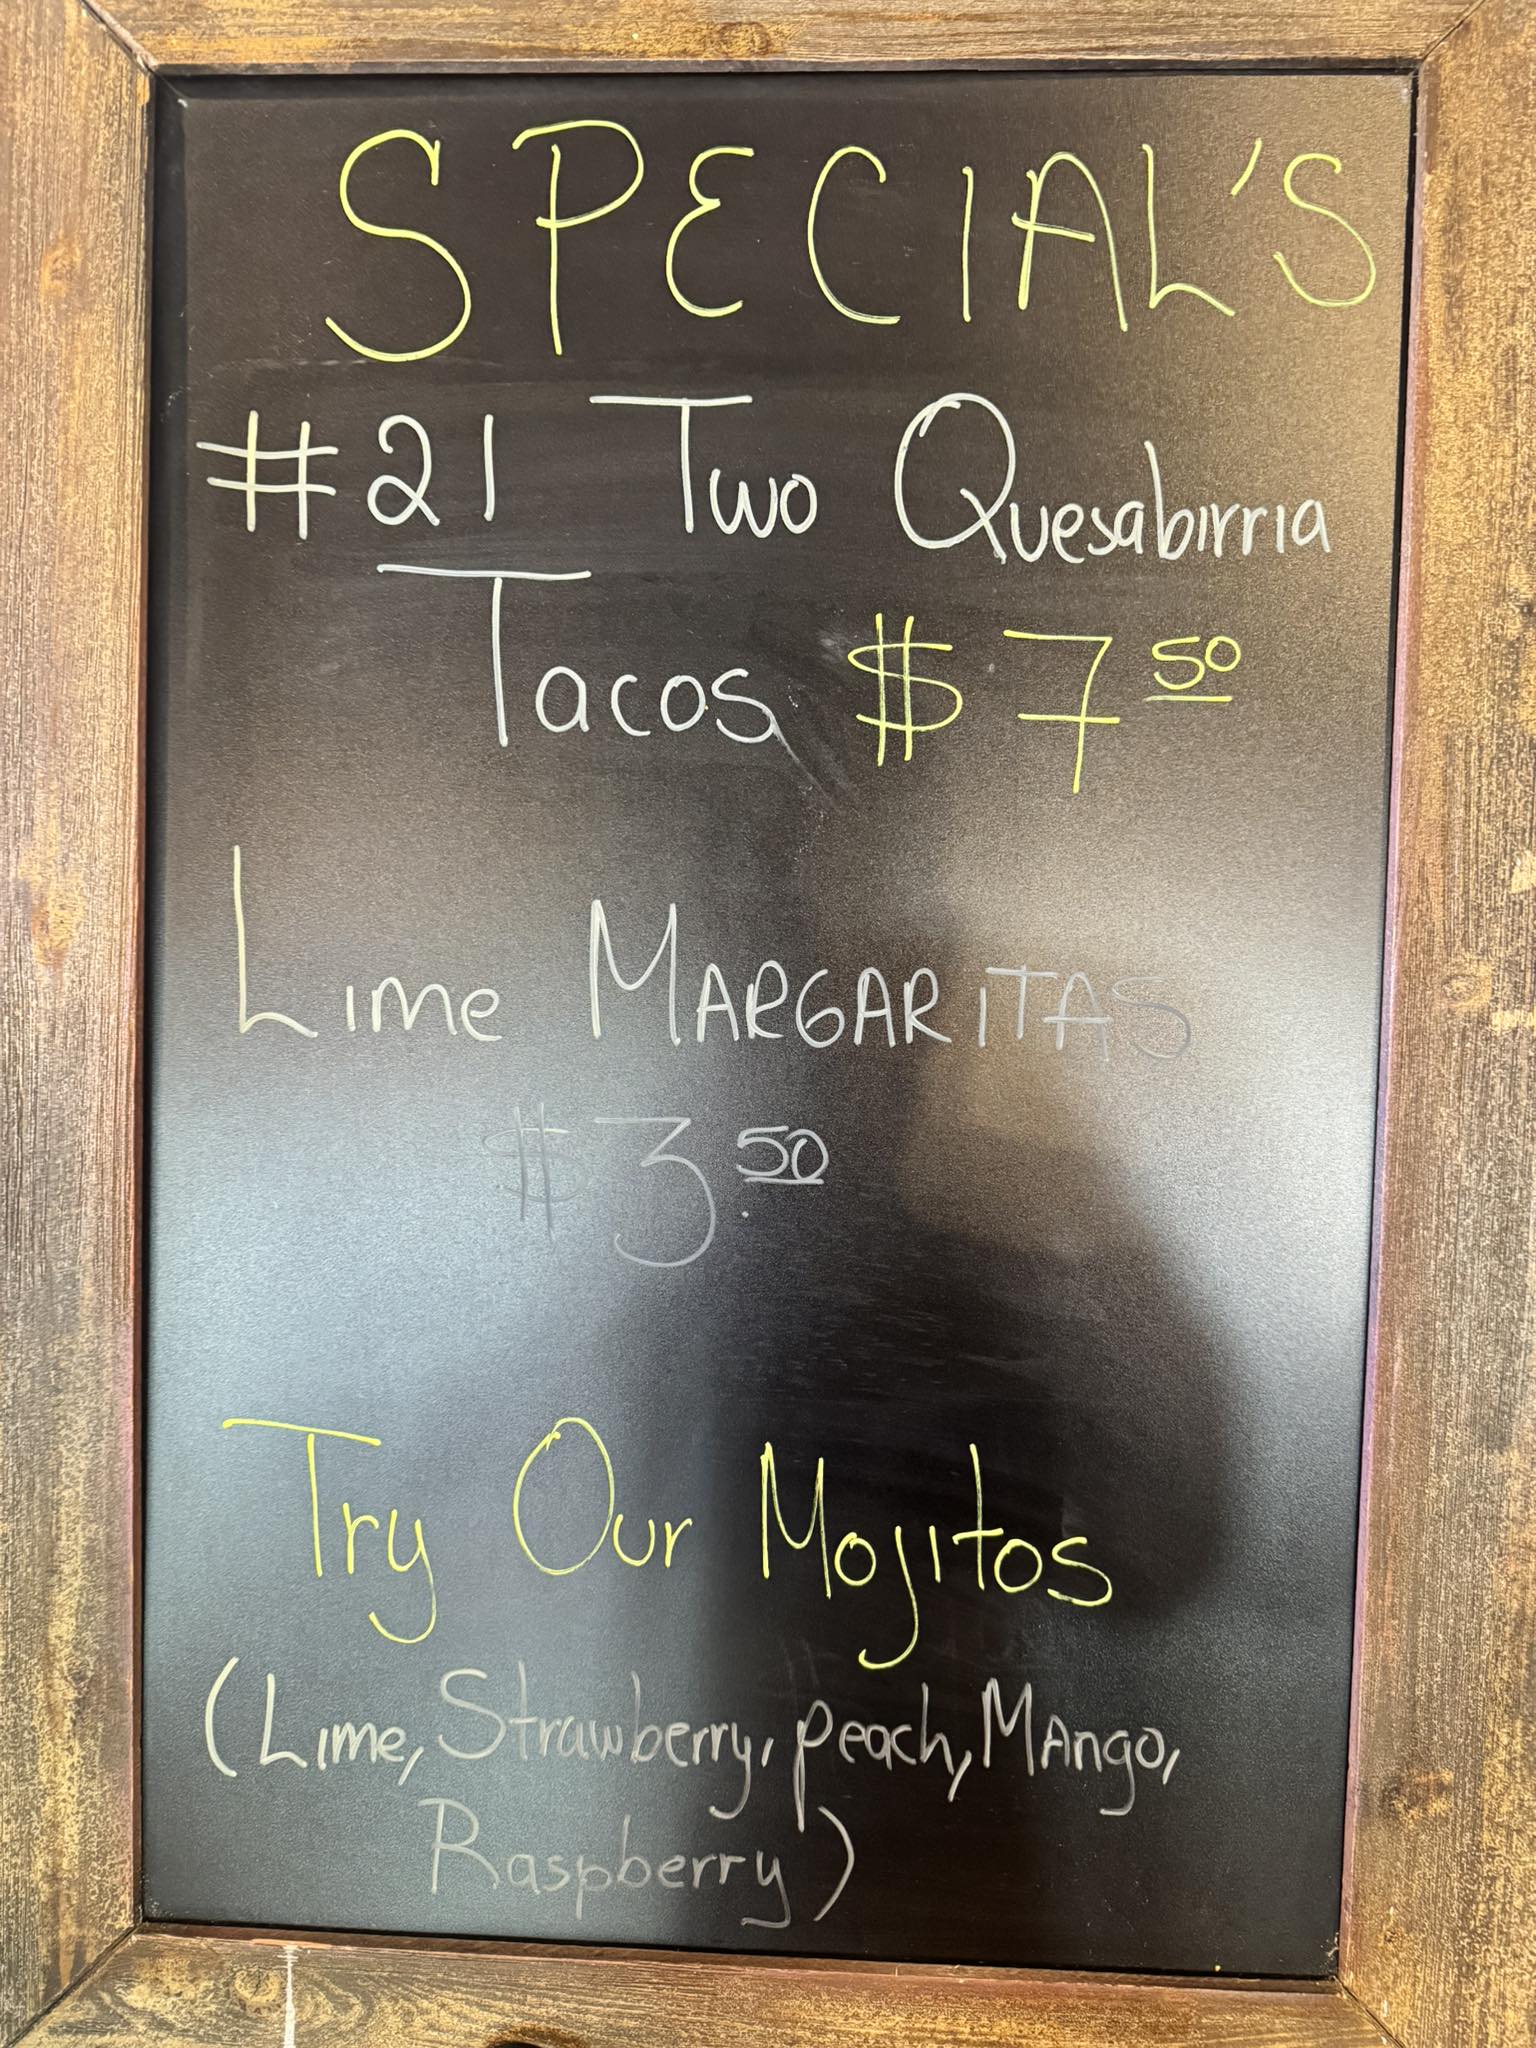 SPECIAL'S
#21 Two Quesabirria
Tacos $7.50
Lime MARGARITAS
$3.50
Try Our Mojitos
(Lime, Strawberry, peach, Mango,
Raspberry)